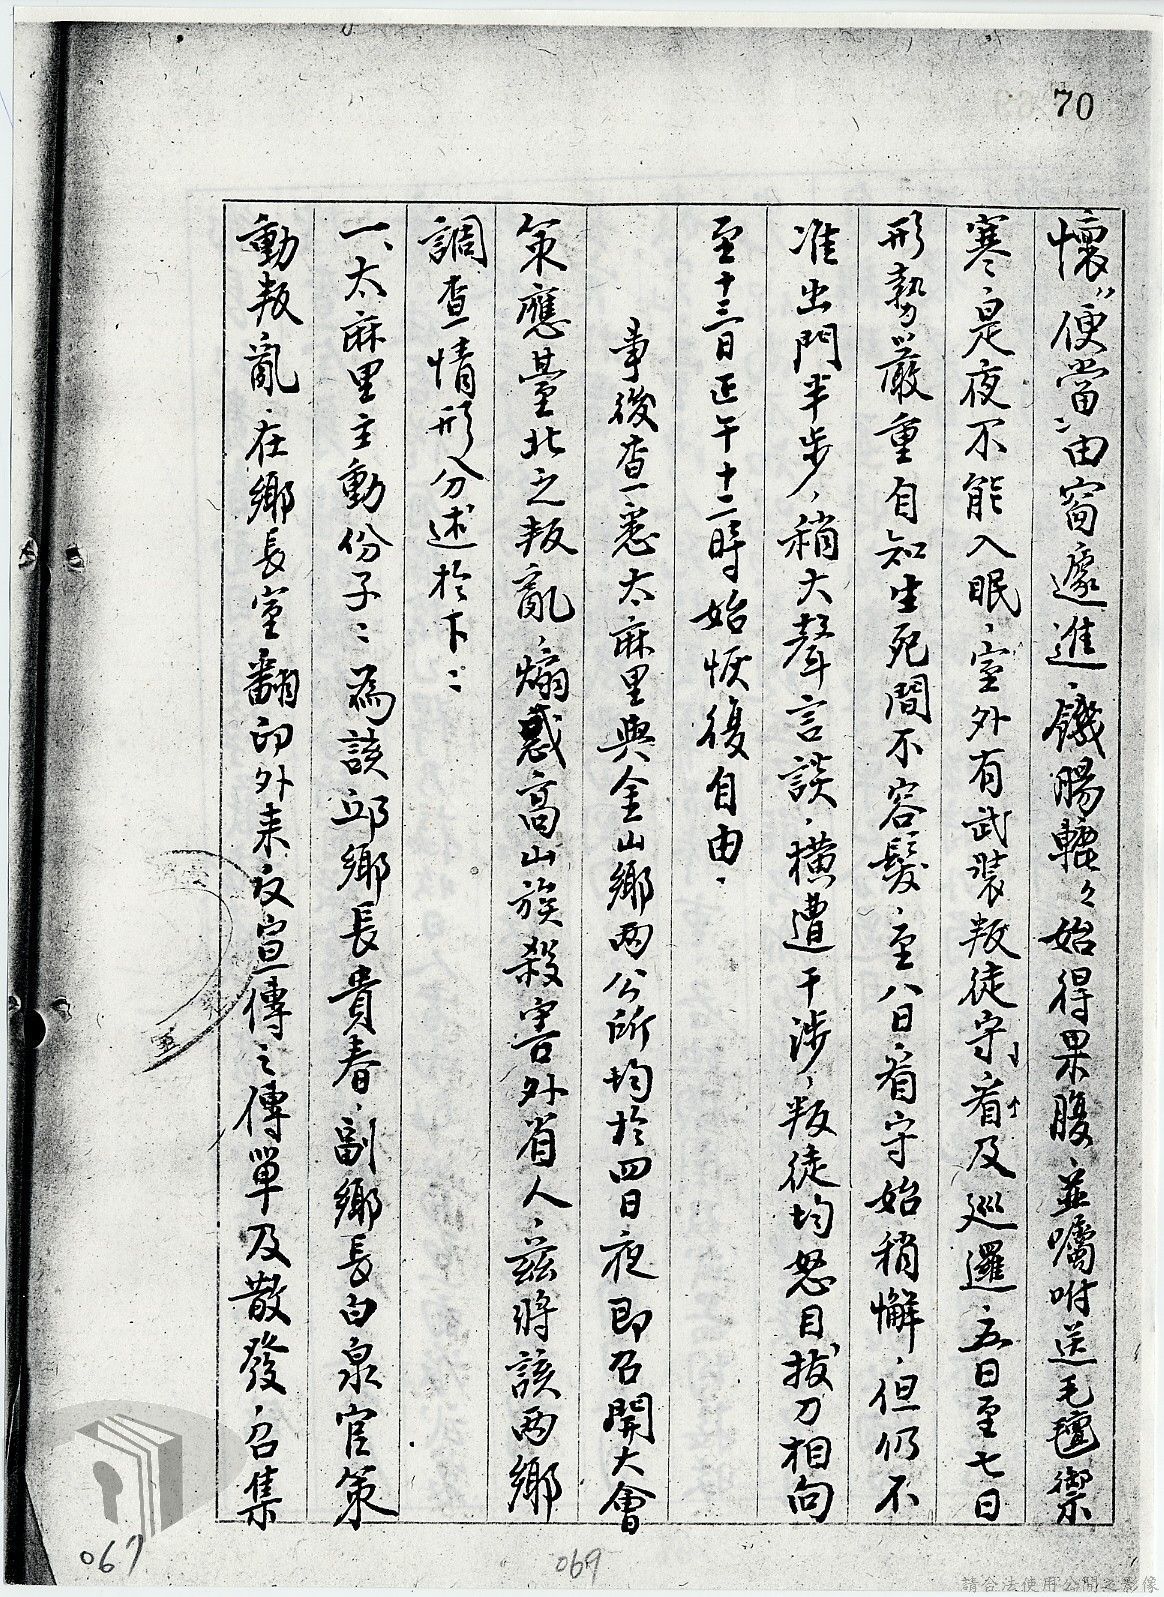 70
懷〃便當〃由窗遞進、饑腸轆々始得果腹、並囑咐送毛氈禦
寒、是夜不能入眠、室外有武裝叛徒守看及巡邏、五日至七日
形勢嚴重自知生死間不容髮、至八日看守始稍懈、但仍不
准出門半步、稍大聲言談、橫遭干涉、叛徒均怒目拔刀相向
至十三日正午十二時始恢復自由、
事後查悉太麻里與金山鄉兩公所均於四日夜即召開大會
策應臺北之叛亂、煽惑高山族殺害外省人、茲將該兩鄉
調查情形分述於下：
一、太麻里主動份子：為該邱鄉長貴春、副鄉長白泉官策
動叛亂、在鄉長室翻印外來文宣傳之傳單及散發、召集
067
069
請合法使用公開之影像